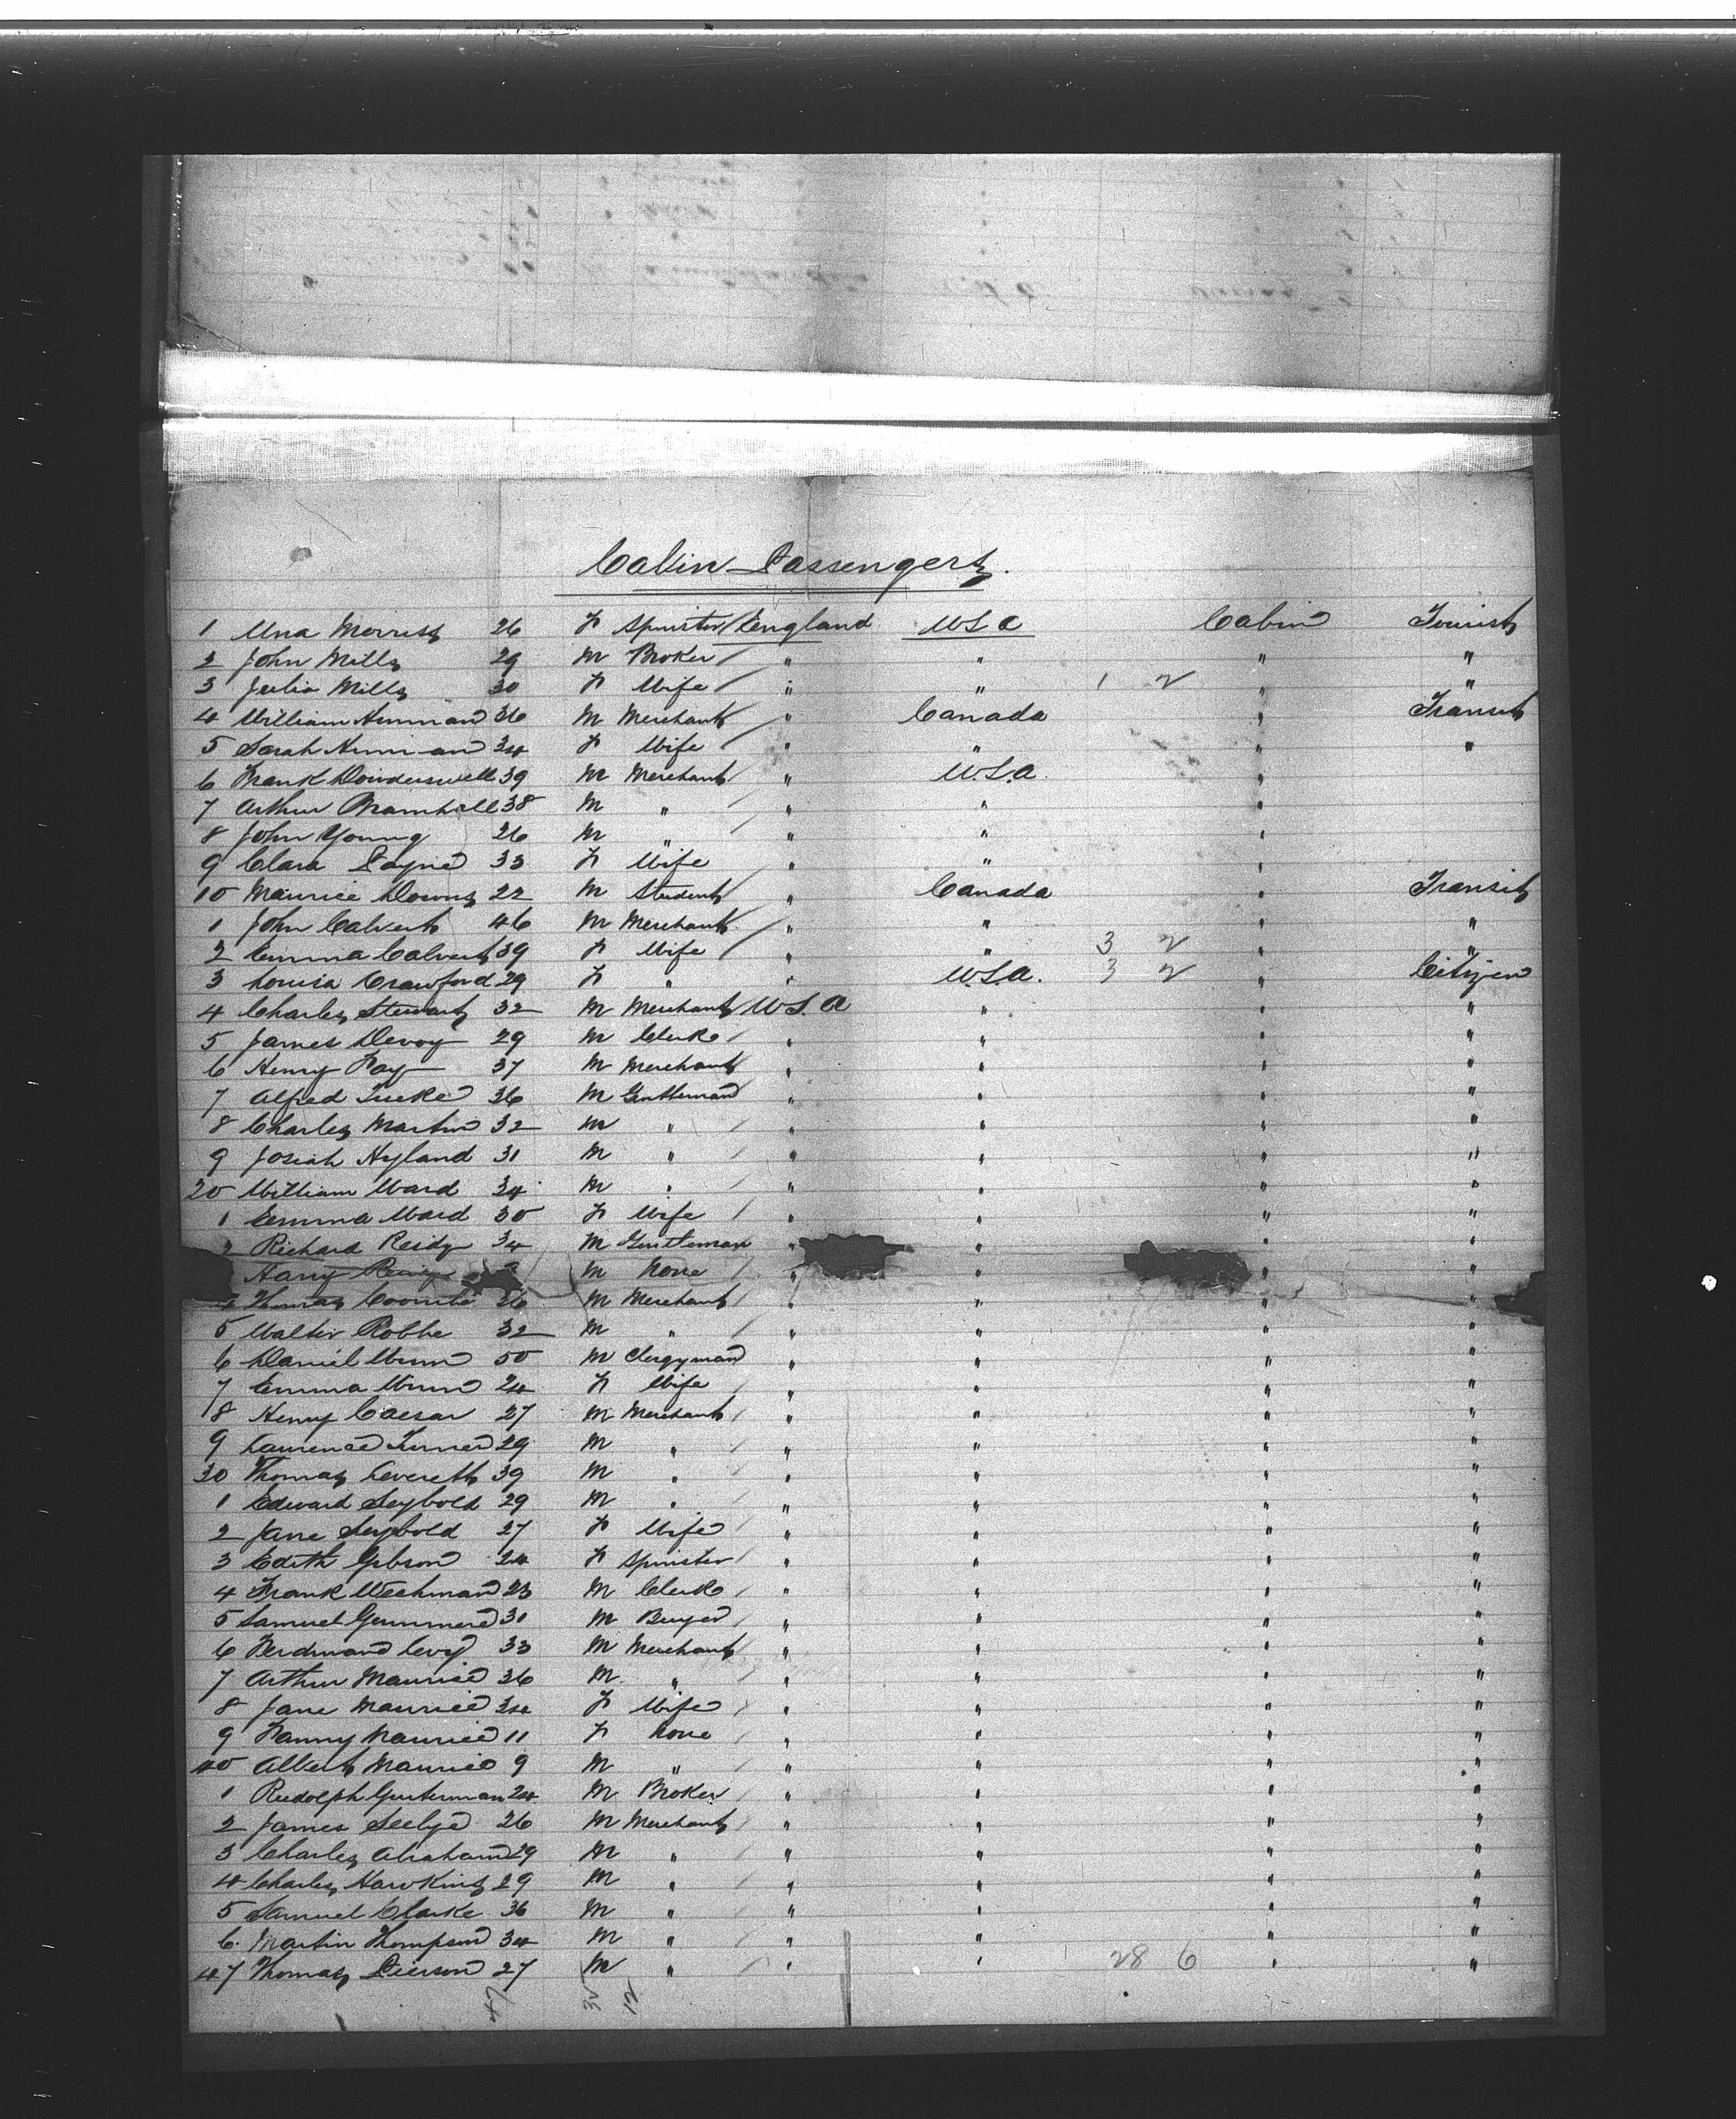 Cabin Passengers.
1 Una Morris 26 F Spinster England U.S.A Cabin Tourist
2 John Mills 29 M Broker " " " "
3 Julia Mills 30 F Wife " " 1 2 " "
4 William 36 M Merchant " Canada " Transit
5 Sarah 34 F Wife " " " "
6 Frank 39 M Merchant " U.S.A. "
7 Arthur Bramhall 38 M " " " "
8 John Young 26 M " " " "
9 Clara Payne 33 F Wife " " "
10 Maurice Downs 22 M Student " Canada " Transit
1 John Calvert 46 M Merchant " " " "
2 Emma Calvert 39 F Wife " " 3 2 " "
3 Louisa Crawford 29 F " " U.S.A. 3 2 " Citizen
4 Charles Stewart 32 M Merchant U.S.A " " "
5 James Devoy 29 M Clerk " " " "
6 Henry 37 M Merchant " " " "
7 Alfred 36 M Gentleman " " " "
8 Charles Martin 32 M " " " " "
9 Josiah Hyland 31 M " " " " "
20 William Ward 34 M " " " " "
1 Emma Ward 30 F Wife " " " "
2 Richard Reidy 34 M Gentleman " " "
Harry Reidy M None " " " "
4 Thomas Coombe 26 M Merchant " " " "
5 Walter Robbe 32 M " " " " "
6 Daniel 50 M Clergyman " " " "
7 Emma 24 F Wife " " " "
8 Henry Caesar 27 M Merchant " " " "
9 Laurence Turner 29 M " " " " "
30 Thomas Leverett 39 M " " " " "
1 Edward Seybold 29 M " " " " "
2 Jane Seybold 27 F Wife " " " "
3 Edith Gibson 24 F Spinster " " " "
4 Frank 23 M Clerk " " " "
5 Samuel 31 M Buyer " " " "
6 Ferdinand Levy 33 M Merchant " " " "
7 Arthur Maurice 36 M " " " " "
8 Jane Maurice 34 F Wife " " " "
9 Fanny Maurice 11 F None " " " "
40 Albert Maurice 9 M " " " " "
1 Rudolph Guterman 24 M Broker " " " "
2 James Seelye 26 M Merchant " " " "
3 Charles Abraham 29 M " " " " "
4 Charles Hawkins 29 M " " " " "
5 Samuel Clarke 36 M " " " " "
6. Martin Thompson 34 M " " " " "
47 Thomas Pierson 27 M " " " 28 6 " "